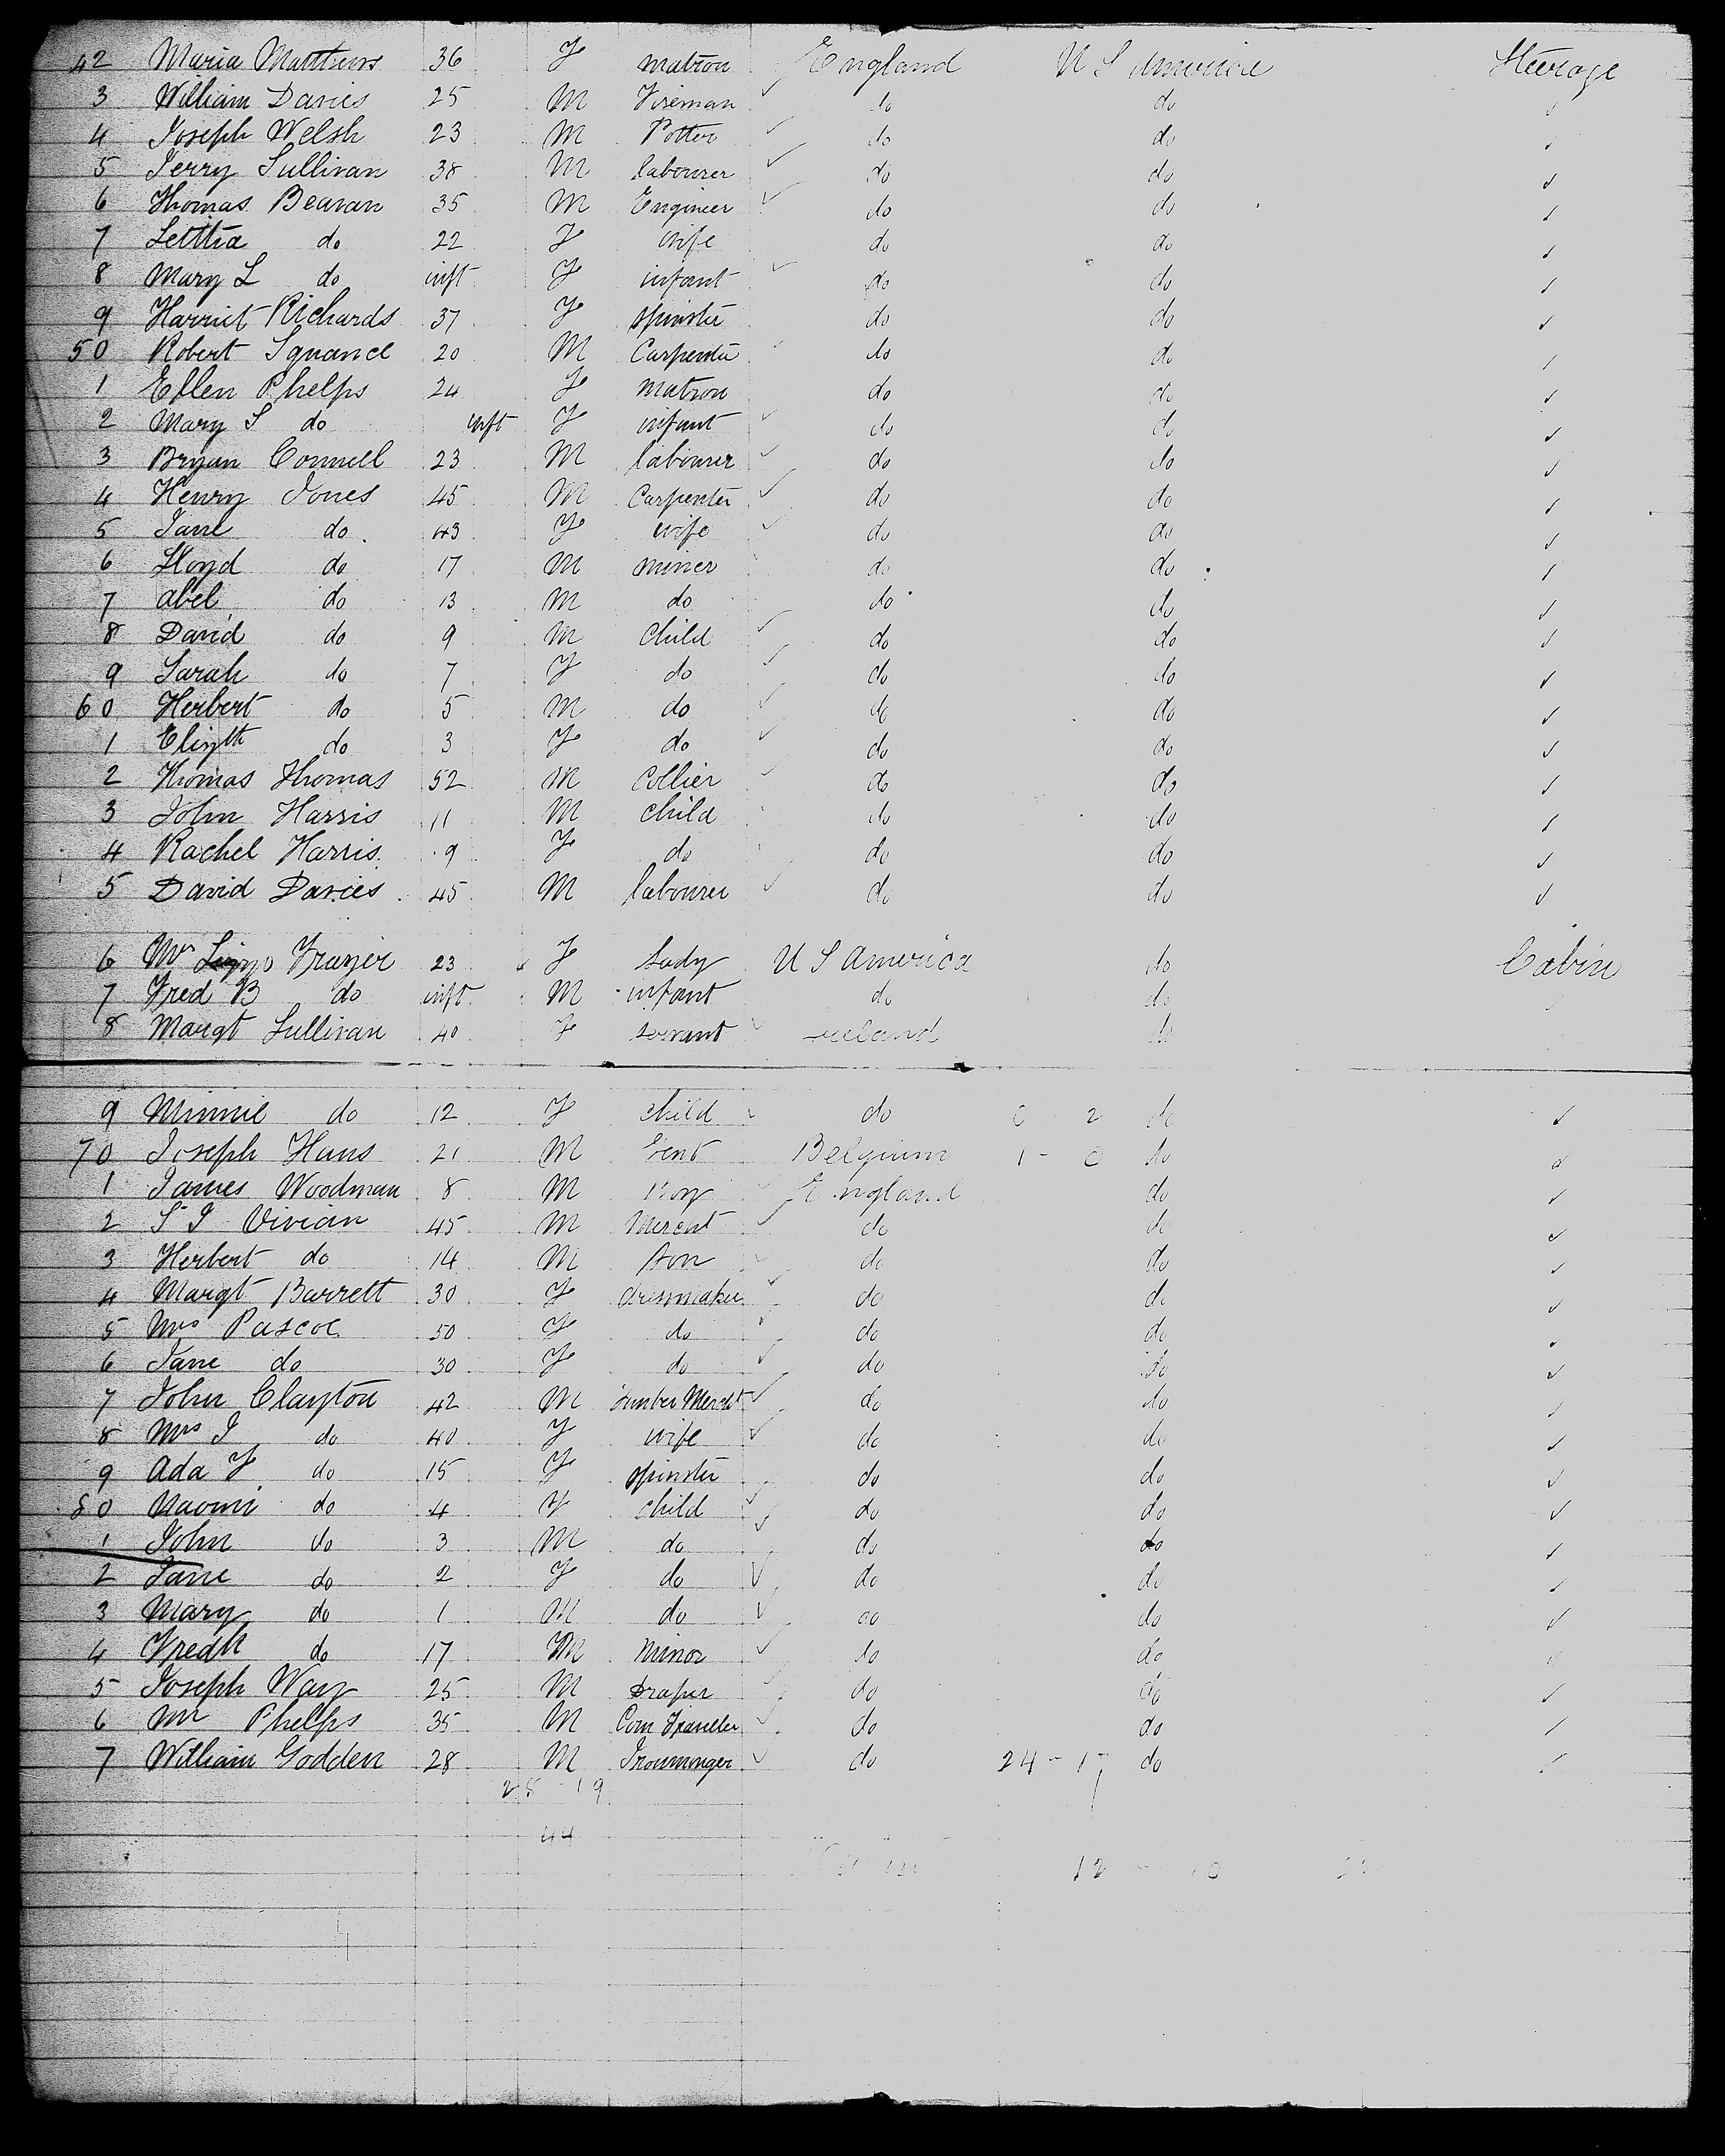 42 Maria Matthews 36 F matron England U S America Steerage
3 William Davies 25 M Fireman do do ✓
4 Joseph Welsh 23 M Potter ✓ do do ✓
5 Jerry Sullivan 38 M labourer ✓ do do ✓
6 Thomas Beavan 35 M Engineer ✓ do do ✓
7 Lettia do 22 F wife do do ✓
8 Mary L do inft F infant ✓ do do ✓
9 Harriet Richards 37 F spinster do do ✓
50 Robert Squance 20 M Carpenter do do ✓
1 Ellen Phelps 24 F matron do do ✓
2 Mary S do inft F infant ✓ do do ✓
3 Bryan Connell 23 M labourer ✓ do do ✓
4 Henry Jones 45 M Carpenter ✓ do do ✓
5 Jane do 43 F wife ✓ do do ✓
6 Lloyd do 17 M miner do do ✓
7 abel do 13 M do do do ✓
8 David do 9 M Child ✓ do do ✓
9 Sarah do 7 F do ✓ do do ✓
60 Herbert do 5 M do ✓ do do ✓
1 Elizth do 3 F do ✓ do do ✓
2 Thomas Thomas 52 M Collier ✓ do do ✓
3 John Harris 11 M child do do ✓
4 Rachel Harris 9 F do do do ✓
5 David Davies 45 M labourer ✓ do do ✓
6 Mrs Frazer 23 F Lady U S America do Cabin
7 Fred B do inft M infant do do
8 Margt Sullivan 40 F servant ✓ Ireland do
9 Minnie do 12 F child do 0 2 do ✓
70 Joseph Hans 21 M Gent Belgium 1 - 0 do ✓
1 James Woodman 8 M Boy England do ✓
2 S J Vivian 45 M Mercht ✓ do do ✓
3 Herbert do 14 M Son do do ✓
4 Margt Barrett 30 F dressmaker ✓ do do ✓
5 Mrs Pascoe 50 F do ✓ do do ✓
6 Jane do 30 F do ✓ do do ✓
7 John Clayton 42 M Timber Mercht ✓ do do ✓
8 Mrs J do 40 F wife ✓ do do ✓
9 Ada F do 15 F spinster do do ✓
80 Naomi do 4 F child ✓ do do ✓
1 John do 3 M do do do ✓
2 Jane do 2 F do ✓ do do ✓
3 Mary do 1 M do ✓ do do ✓
4 Fredk do 17 M minor ✓ do do ✓
5 Joseph Way 25 M Draper do do ✓
6 Mr Phelps 35 M Com Traveller ✓ do do ✓
7 William Godden 28 M Ironmonger ✓ do 24 - 17 do ✓
25 19
44
12 - 10